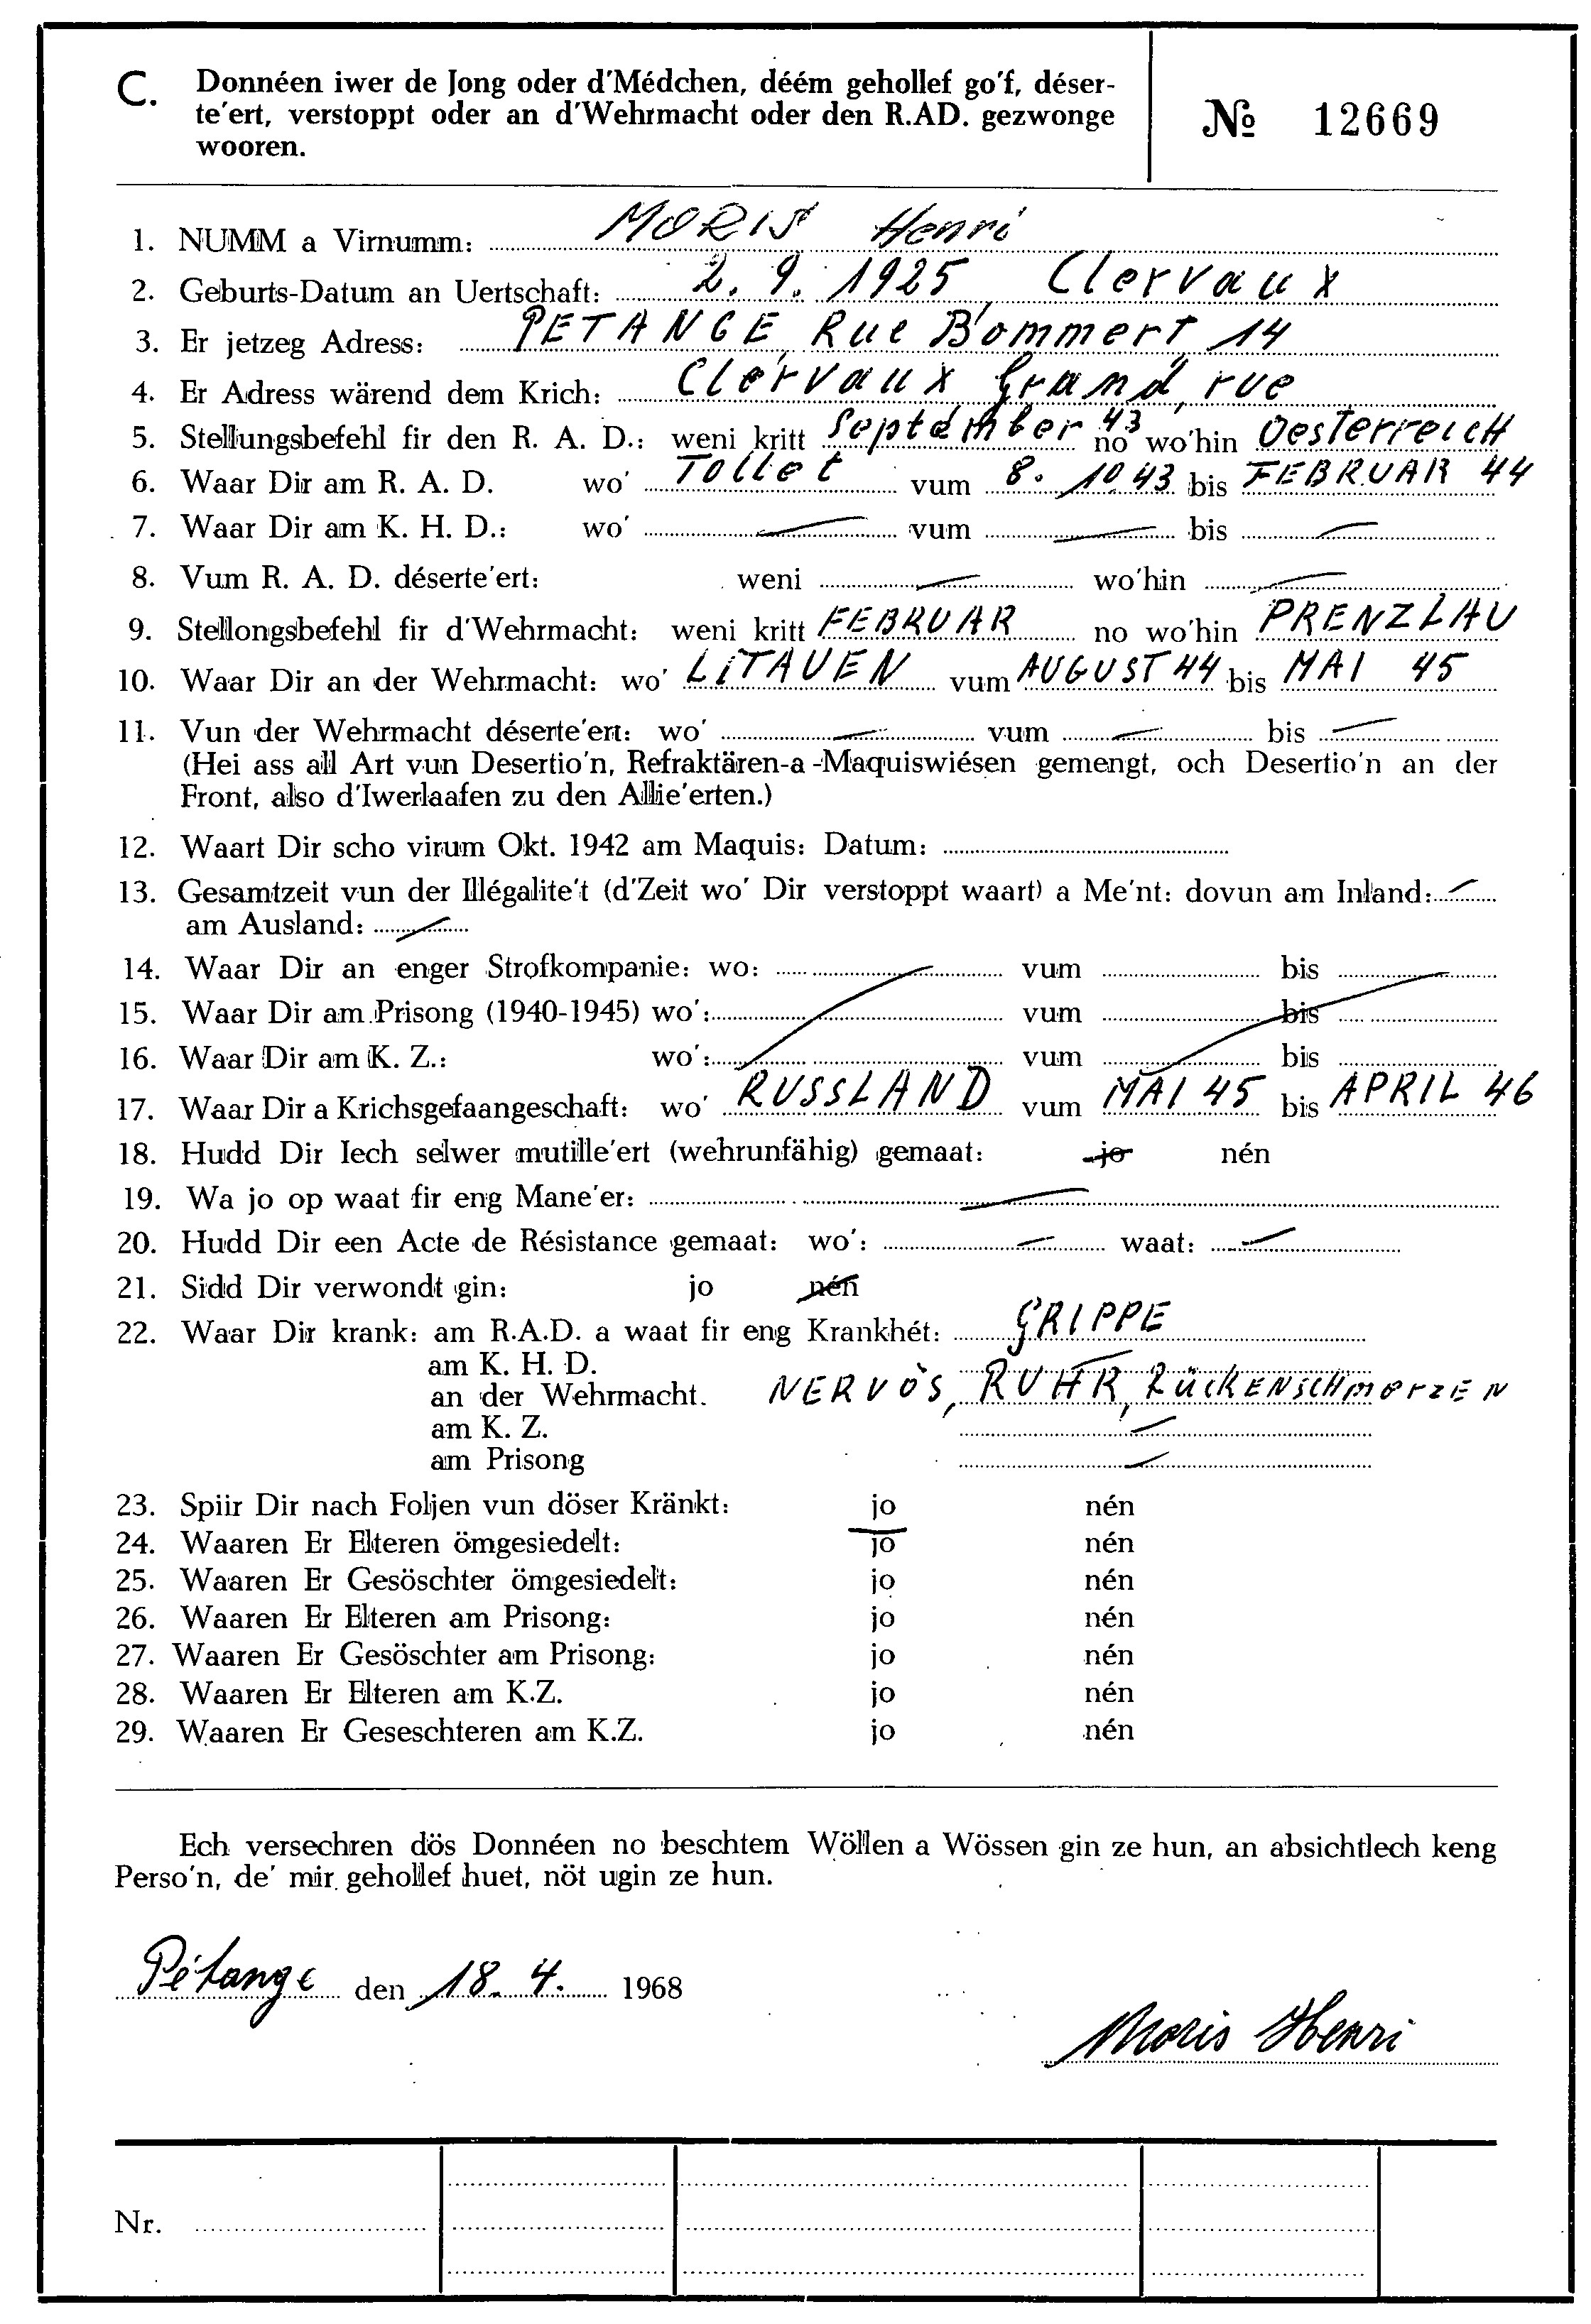 C. Donnéen iwer de Jong oder d'Médchen, déém gehollef go'f, déser-
te'ert, verstoppt oder an d'Wehrmacht oder den R.AD. gezwonge
wooren.
№ 12669
1. NUMM a Virnumm: MORIS Henri
2. Geburts-Datum an Uertschaft: 2. 9. 1925 Clervaux
3. Er jetzeg Adress: PETANGE, Rue Bommert 14
4. Er Adress wärend dem Krich: Clervaux Grand, rue
5. Stellungsbefehl fir den R. A. D.: weni kritt September 43 no wo'hin OesTerreich
6. Waar Dir am R. A. D. wo' Tollet vum 8. 10.43 bis FEBRUAR 44
7. Waar Dir am K. H. D.: wo' — vum — bis —
8. Vum R. A. D. déserte'ert: weni — wo'hin —
9. Stellongsbefehl fir d'Wehrmacht: weni kritt FEBRUAR no wo'hin PRENZLAU
10. Waar Dir an der Wehrmacht: wo' LiTAUEN vum AUGUST 44 bis MAI 45
11. Vun der Wehrmacht déserte'ert: wo' — vum — bis —
(Hei ass all Art vun Desertio'n, Refraktären-a-Maquiswiésen gemengt, och Desertio'n an der
Front, also d'Iwerlaafen zu den Allie'erten.)
12. Waart Dir scho virum Okt. 1942 am Maquis: Datum:
13. Gesamtzeit vun der Illégalite't (d'Zeit wo' Dir verstoppt waart) a Me'nt: dovun am Inland: —
am Ausland: —
14. Waar Dir an enger Strofkompanie: wo: vum bis
15. Waar Dir am Prisong (1940-1945) wo': vum bis
16. Waar Dir am K. Z.: wo': vum bis
17. Waar Dir a Krichsgefaangeschaft: wo' RUSSLAND vum MAI 45 bis APRIL 46
18. Hudd Dir Iech selwer mutille'ert (wehrunfähig) gemaat: jo nén
19. Wa jo op waat fir eng Mane'er: —
20. Hudd Dir een Acte de Résistance gemaat: wo': — waat: —
21. Sidd Dir verwondt gin: jo nén
22. Waar Dir krank: am R.A.D. a waat fir eng Krankhét: GRIPPE
am K. H. D. —
an der Wehrmacht. NERVÖS, RUHR, RückENSCHmerzEN
am K. Z. —
am Prisong —
23. Spiir Dir nach Foljen vun döser Kränkt: jo nén
24. Waaren Er Elteren ömgesiedelt: jo nén
25. Waaren Er Gesöschter ömgesiedelt: jo nén
26. Waaren Er Elteren am Prisong: jo nén
27. Waaren Er Gesöschter am Prisong: jo nén
28. Waaren Er Elteren am K.Z. jo nén
29. Waaren Er Geseschteren am K.Z. jo nén
Ech versechren dös Donnéen no beschtem Wöllen a Wössen gin ze hun, an absichtlech keng
Perso'n, de' mir gehollef huet, nöt ugin ze hun.
Pétange den 18. 4. 1968
Moris Henri
Nr.